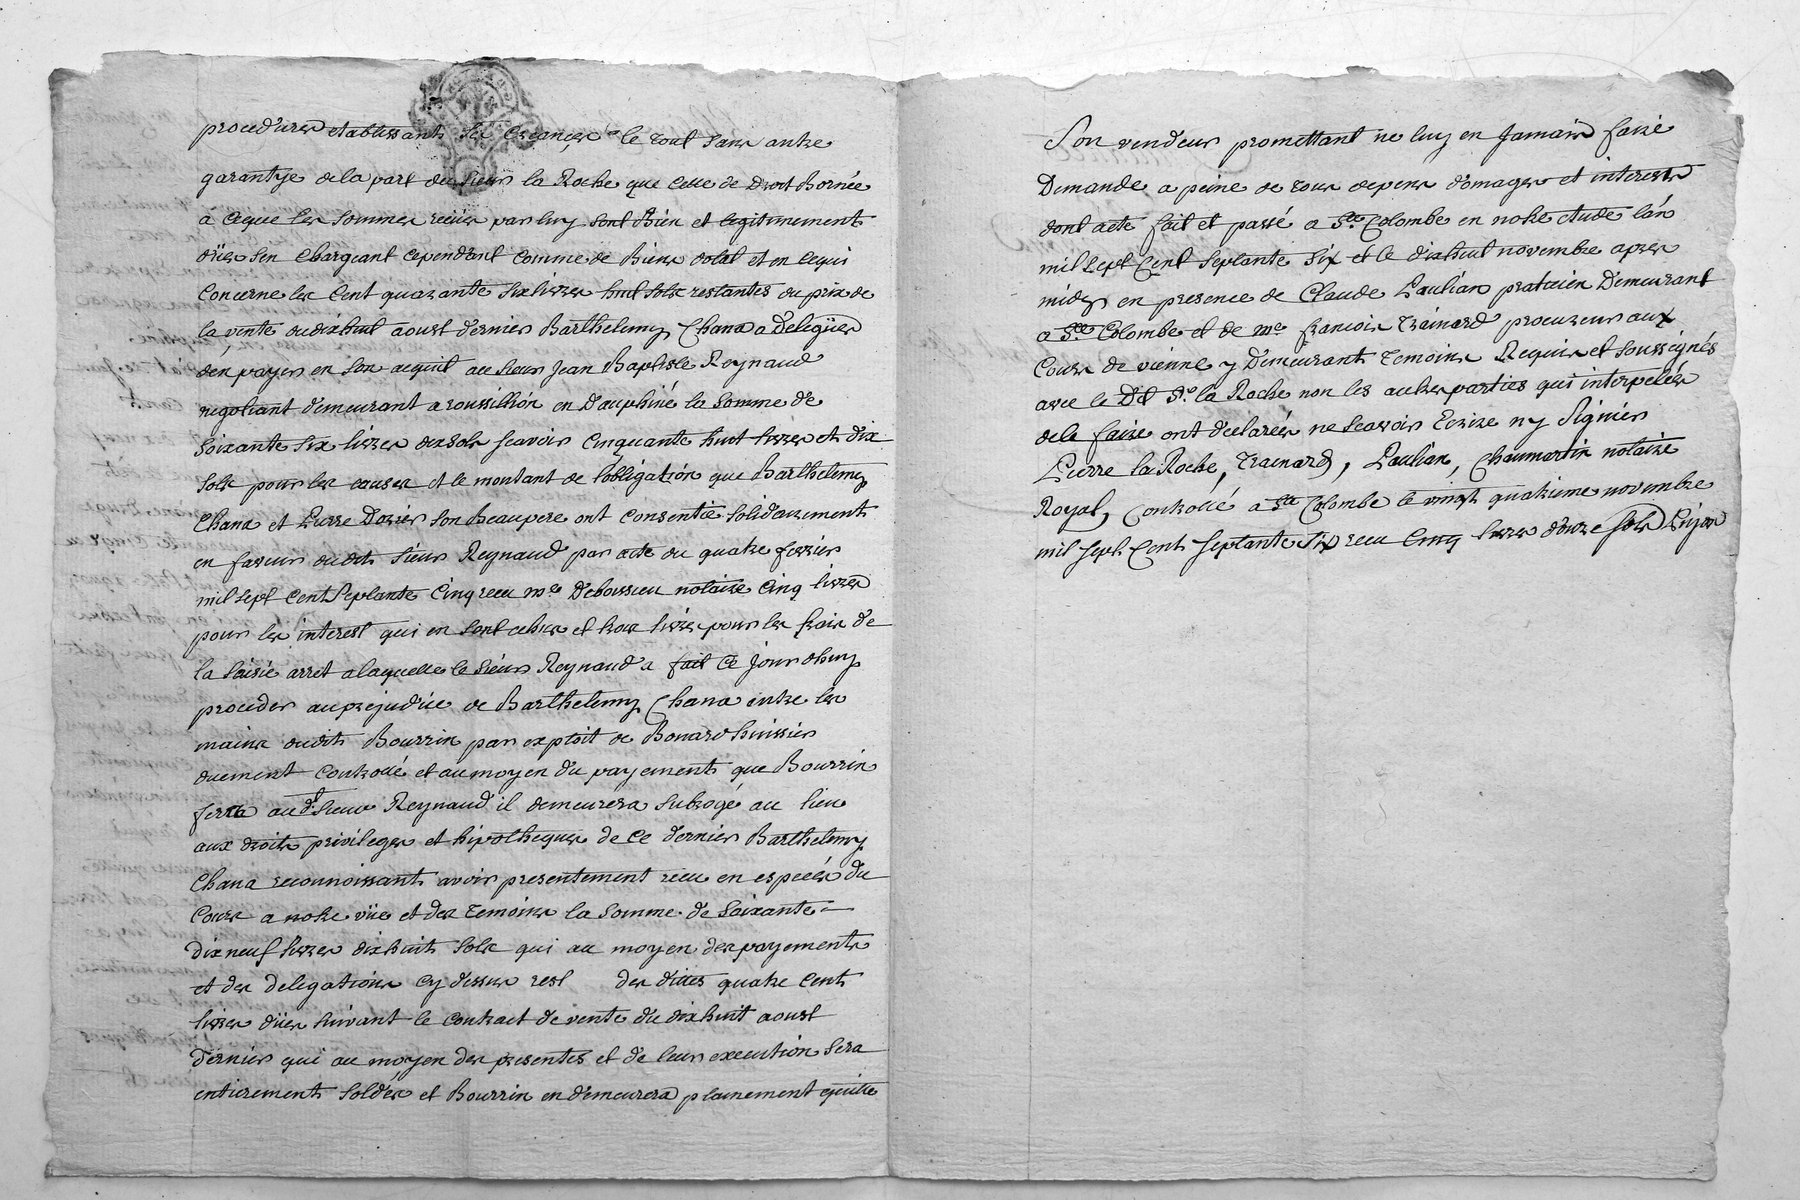 procedures etablissants ses creances le tout sans autre
garantye de la part du sieur la Roche que celle de Droit Bornée
a ceque les sommes recües par luy sont Bien et legitimement
düës sen Chargeant cependent comme de Biens dotal et en cequi
Concerne les Cent quarante six livres huit sols restantes du prix de
la vente du dixhuit aoust dernier Barthelemy Chana a Deleguer
den payer en son acquit au sieur Jean Baptiste Reynaud
negotiant demeurant a roussillion en Dauphiné la somme de
soixante six livres dix sols scavoir Cinquante huit livres et dix
sols pour les causes et le montant de lobbligation que Barthelemy
Chana et Pierre Dozier son Beaupere ont Consentie solidairement
en faveur dudit sieur Reynaud par acte du quatre fevrier
mil sept Cent Septante Cinq recu me Deboissieu notaire Cinq livres
pour les interest qui en sont echus et trois livres pour les frais de
la saisie arret a laquelle le sieur Reynaud a fait ce jourdhuy
proceder au prejudice de Barthelemy Chana entre les
mains dudit Bourrin par exploit de Bonard huissier
duement Controlé et au moyen du payement que Bourrin
ferra audt sieur Reynaud il demeurera subrogé au lieu
aux droits privileges et hipotheques de ce dernier Barthelemy
Chana reconnoissant avoir presentement recu en especes du
Cours a notre vüe et des temoins la somme de soixante=
Dix neuf livres dixhuit sols qui au moyen des payements
et des delegations cy dessus rest des dittes quatre Cent
livres düës suivant le contract de vente du dixhuit aoust
dernier qui au moyen des presentes et de leur execution sera
entierement soldér et Bourrin en demeurera plainement quitte
Son vendeur promettant ne luy en Jamais faire
Demande a peine de tous depens domages et interests
dont acte fait et passé a Ste Colombe en notre etude lan
mil sept Cent septante six et le dixhuit novembre apres
midy en presence de Claude Paulian praticien Demeurant
a Ste Colombe et de me francois Trainard procureur aux
Cours de vienne y Demeurant temoins Requis et soussignés
avec le Dt Sr la Roche non les autres parties qui interpelées
dele faire ont declarées ne scavoir Ecrire ny Signier
Pierre la Roche, Trainard, Paulian, Chaumartin notaire
Royal, Controlé a Ste Colombe le vingt quatrieme novembre
mil sept Cent septante six recu Cinq livres donze sols Pijon